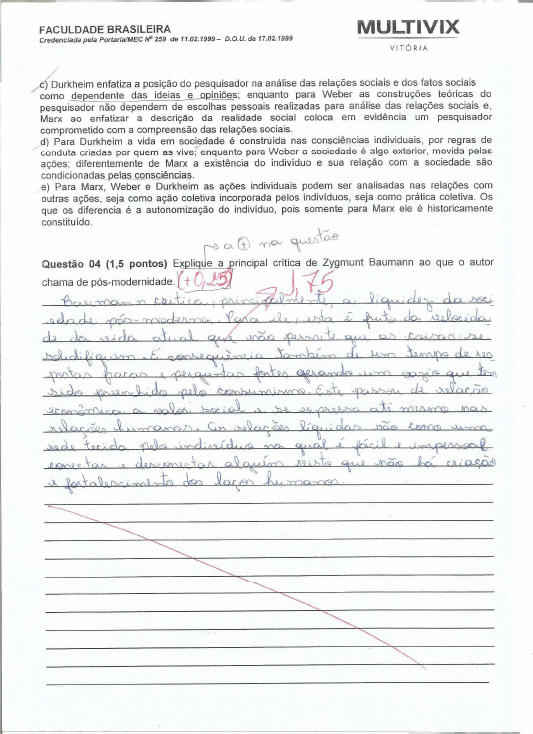 FACULDADE BRASILEIRA
Credenciada pela Portaria/MEC Nº 259 de 11.02.1999 – D.O.U. de 17.02.1999
MULTIVIX
VITÓRIA
c) Durkheim enfatiza a posição do pesquisador na análise das relações sociais e dos fatos sociais
como dependente das ideias e opiniões; enquanto para Weber as construções teóricas do
pesquisador não dependem de escolhas pessoais realizadas para análise das relações sociais e,
Marx ao enfatizar a descrição da realidade social coloca em evidência um pesquisador
comprometido com a compreensão das relações sociais.
d) Para Durkheim a vida em sociedade é construída nas consciências individuais, por regras de
conduta criadas por quem as vive; enquanto para Weber a sociedade é algo exterior, movida pelas
ações; diferentemente de Marx a existência do indivíduo e sua relação com a sociedade são
condicionadas pelas consciências.
e) Para Marx, Weber e Durkheim as ações individuais podem ser analisadas nas relações com
outras ações, seja como ação coletiva incorporada pelos indivíduos, seja como prática coletiva. Os
que os diferencia é a autonomização do indivíduo, pois somente para Marx ele é historicamente
constituído.
a + na questão
Questão 04 (1,5 pontos) Explique a principal crítica de Zygmunt Baumann ao que o autor
chama de pós-modernidade. (+0,25) 1,75
Baumann critica, principalmente, a liquidez da soci
edade pós-moderna. Para ele, esta é fruto da velocida
de da vida atual que não permite que as coisas se
solidifiquem. É consequência também de um tempo de res
postas fracas e perguntas fortes gerando um vazio que tem
sido preenchido pelo consumismo. Este passou de relação
econômica a valor social e se expressa até mesmo nas
relações humanas. As relações líquidas são como uma
rede tecida pelo indivíduo na qual é fácil e impessoal
conectar e desconectar alguém visto que não há criação
e fortalescimento dos laços humanos.